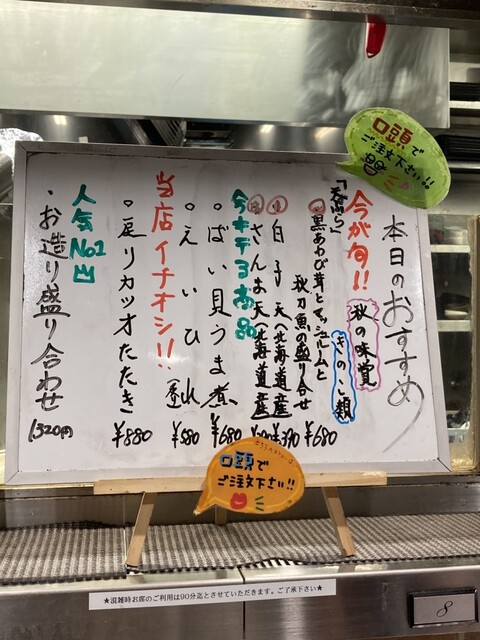 口頭で
ご注文下さい!!
本日のおすすめ
今が旬!!
秋の味覚
きのこ類
「天ぷら」
黒あわび茸とマッシュルームと
秋刀魚の盛り合せ
¥680
白子天(北海道産)
¥390
さんま天(北海道産)
今キテる商品
・ばい貝うま煮
¥680
・えいひれ
¥580
当店イチオシ!!
戻りカツオたたき
¥880
人気No1
・お造り盛り合わせ
1320円
口頭で
ご注文下さい!!
★混雑時お席のご利用は90分迄とさせていただきます。ご了承下さい★
8